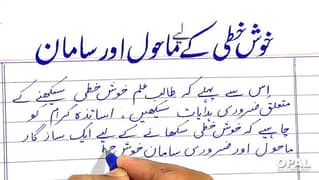 خوش خطی کے لیے ماحول اور سامان
اس سے پہلے کہ طالب علم خوش خطی سیکھنے کے
متعلق ضروری ہدایات سیکھیں۔ اساتذہ کرام کو
چاہیے کہ خوش خطی سکھانے کے لیے ایک ساز گار
ماحول اور ضروری سامان خوش
OPAL